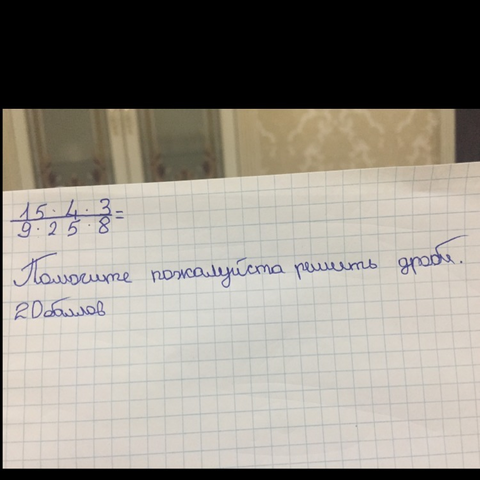 15 · 4 · 3
9 · 25 · 8 =
Помогите пожалуйста решить дробь.
20баллов